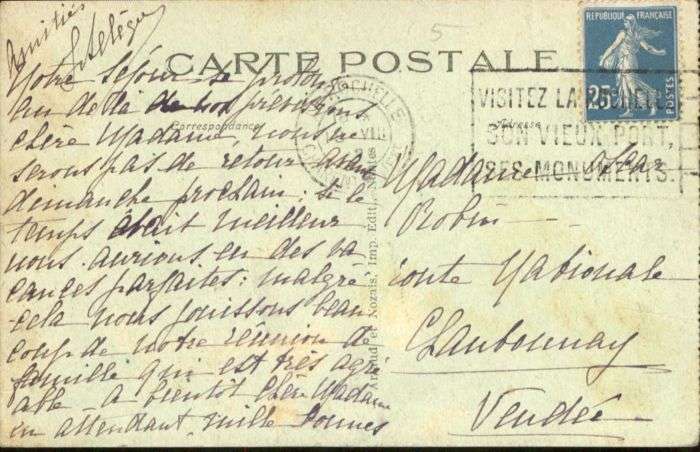 Amitiés
CARTE POSTALE
5
RÉPUBLIQUE FRANÇAISE
25
POSTES
LA ROCHELLE
VIII
VISITEZ LA ROCHELLE
SON VIEUX PORT,
SES MONUMENTS.
Correspondance
Adresse
Notre séjour se prolonge
au delà de nos prévisions
chère Madame, nous ne
serons pas de retour avant
dimanche prochain; si le
temps était meilleur
nous aurions eu des va
cances parfaites; malgré
cela nous jouissons beau
coup de notre réunion de
famille qui est très agré
able – à bientôt chère Madame
en attendant mille bonnes
Imp. Édit., Nantes
Madame
Robin
route Nationale
Chantonnay
Vendée